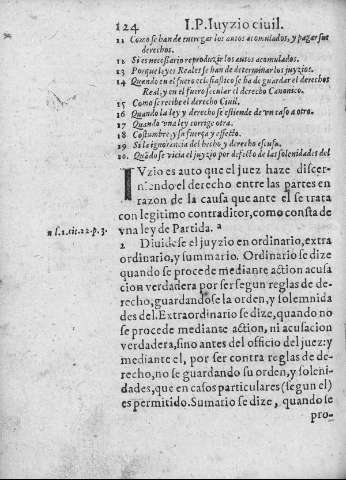 124 I.P. Iuyzio ciuil.
11 Como se han de entregar los autos acomulados, y pagar sus
derechos.
12 Si es necessario reproduzir los autos acomulados.
13 Porque leyes Reales se han de determinar los juyzios.
14 Quando en el fuero eclesiastico se ha de guardar el derecho
Real, y en el fuero secular el derecho Canonico.
15 Como se recibe el derecho Ciuil.
16 Quando la ley y derecho se estiende de vn caso a otro.
17 Quando vna ley corrige otra.
18 Costumbre, y su fuerça y efecto.
19 Si la ignorancia del hecho y derecho escusa.
20. Quãdo se vicia el juyzio por defecto de las solenidades del
IVzio es auto que el juez haze discer-
niendo el derecho entre las partes en
razon de la causa que ante el se trata
con legitimo contraditor, como consta de
vna ley de Partida. a
a l. 1. tit. 22. p. 3.
2 Diuidese el juyzio en ordinario, extra
ordinario, y summario. Ordinario se dize
quando se procede mediante action acusa
cion verdadera por ser segun reglas de de-
recho, guardandose la orden, y solemnida
des del. Extraordinario se dize, quando no
se procede mediante action, ni acusacion
verdadera, sino antes del officio del juez: y
mediante el, por ser contra reglas de de-
recho, no se guardando su orden, y soleni-
dades, que en casos particulares (segun el)
es permitido. Sumario se dize, quando se
pro-